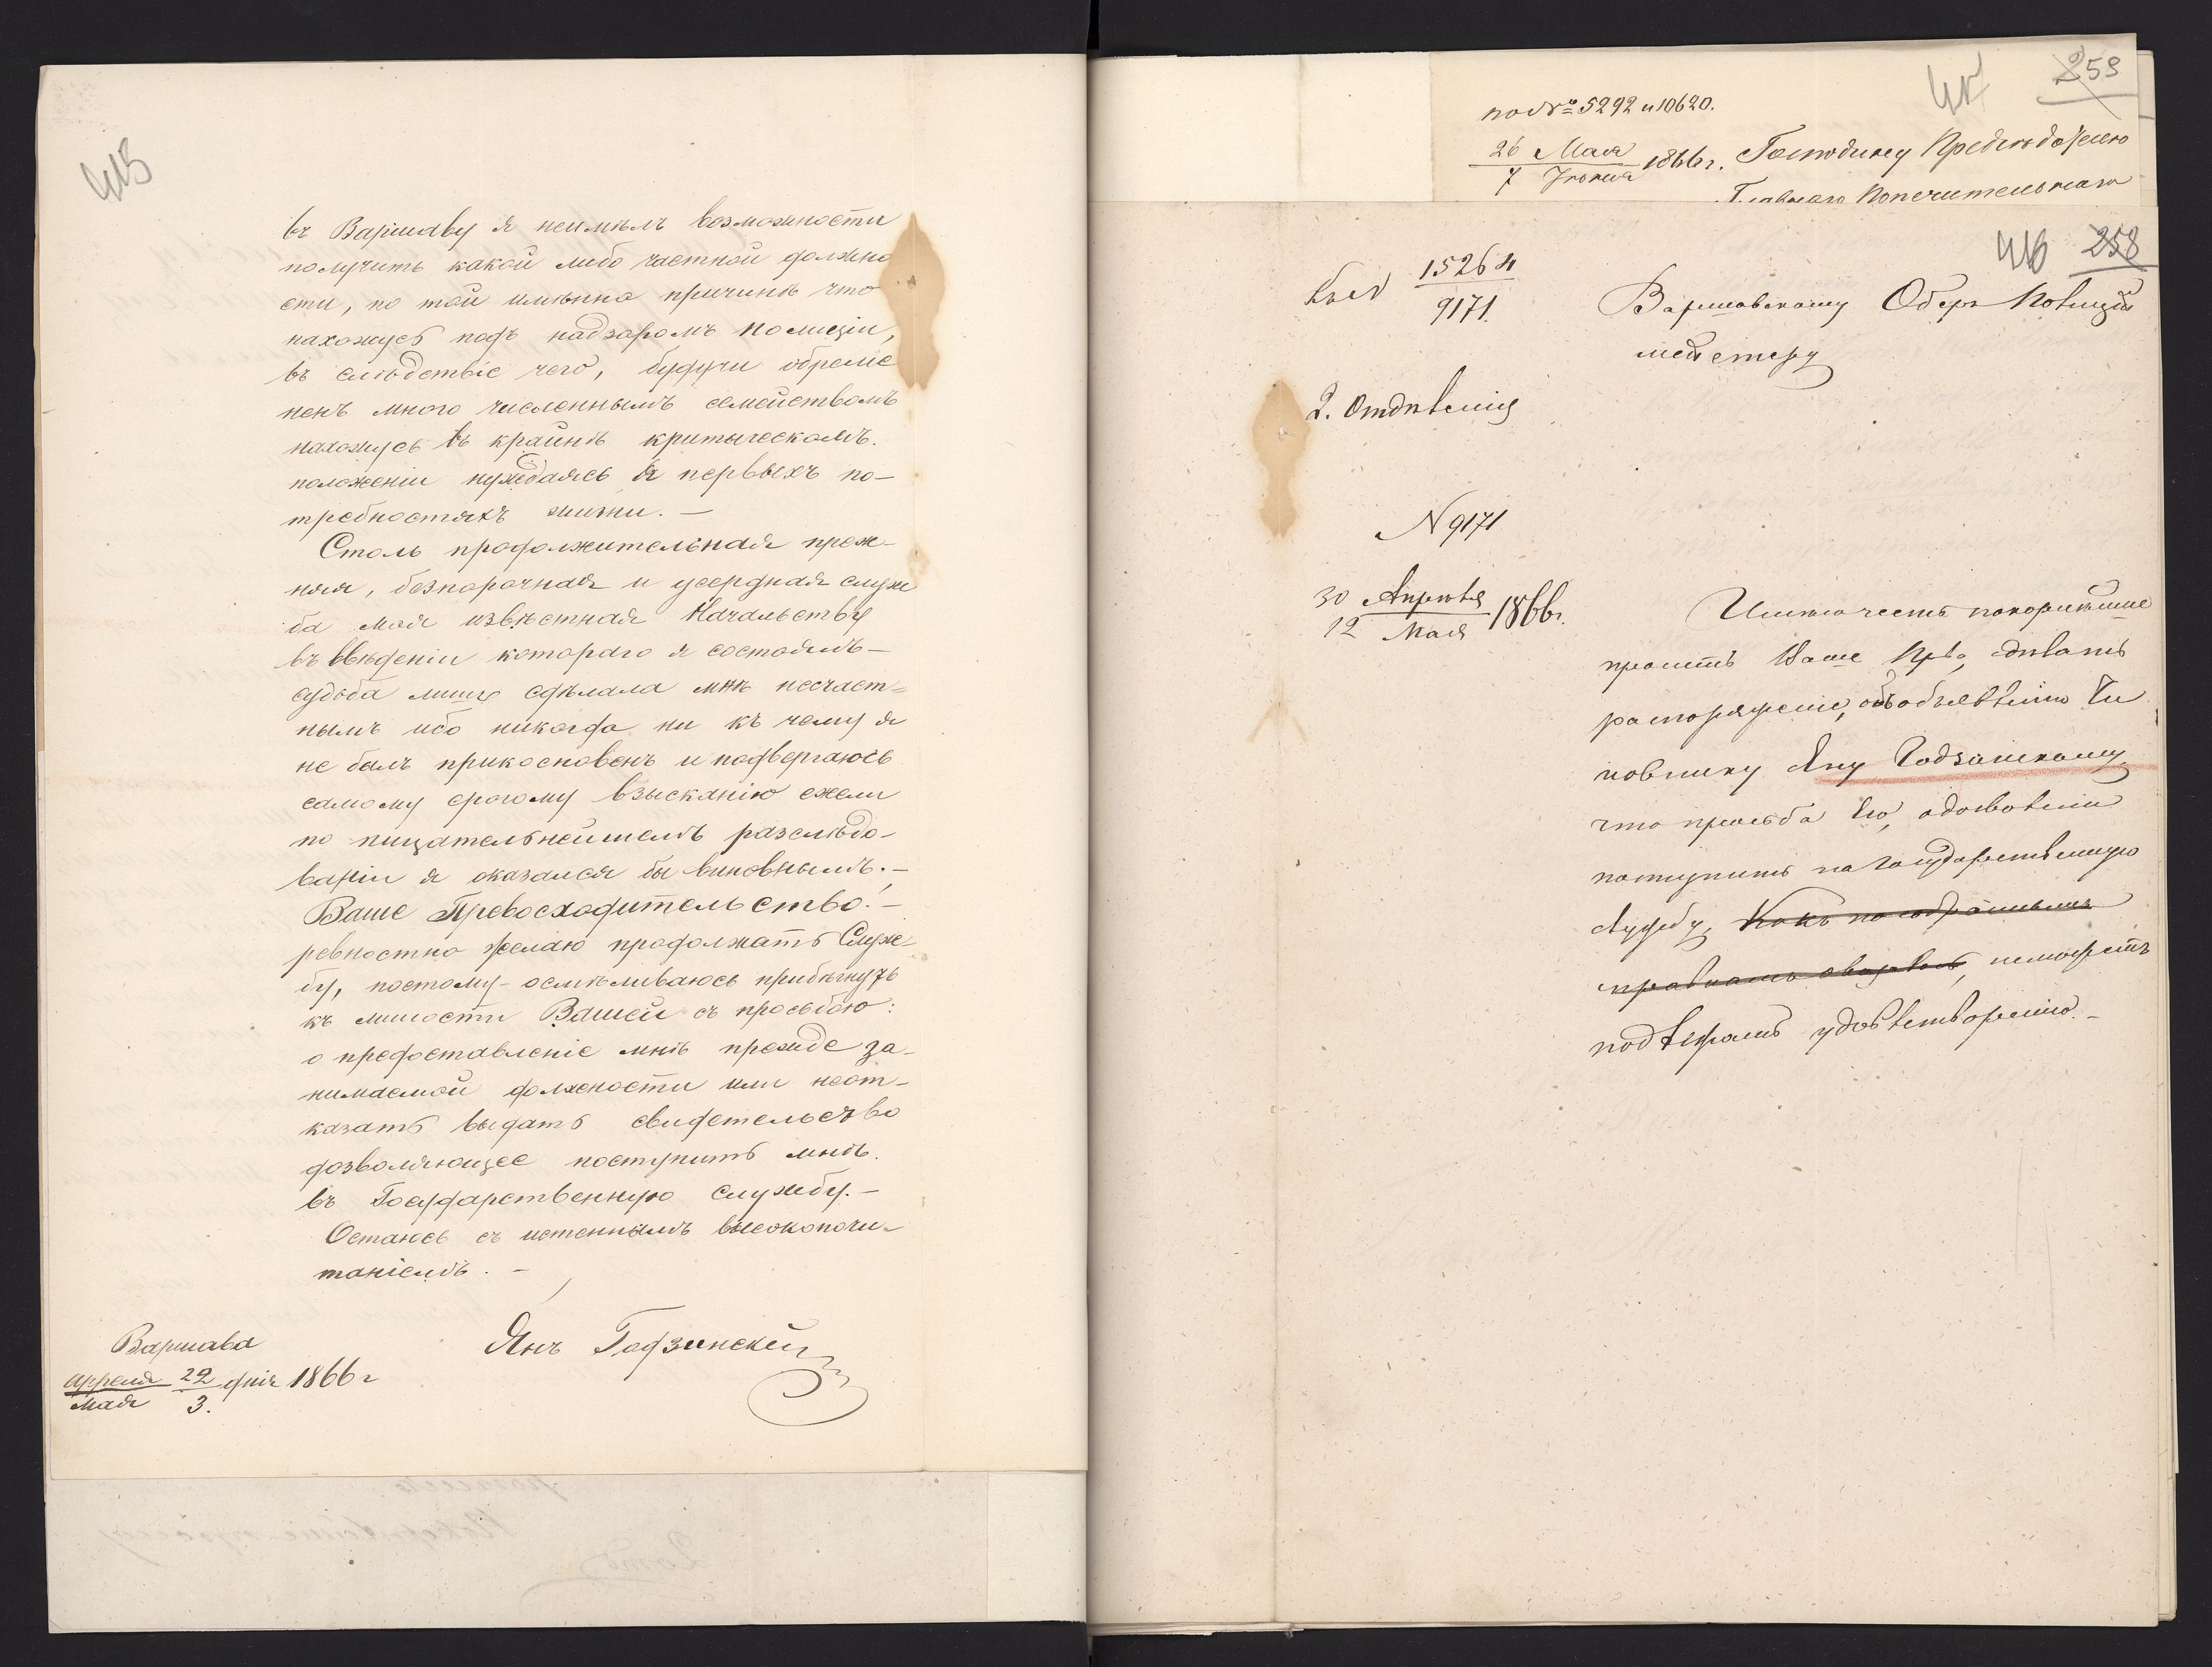 415
въ Варшаву я неимѣлъ возможности
получить какой либо частной должно
сти, по той имѣнно причинѣ что
нахожусь подъ надзоромъ полиціи,
въ слѣдствіе чего, будучи обреме
ненъ много численнымъ семействомъ
нахожусь въ крайнѣ критыческомъ.
положеніи нуждаясь въ первыхъ по-
требностяхъ жизни. —
Столь продолжительная преж-
няя, безпорочная и усердная служ
ба моя извѣстная Начальству
въ вѣденіи котораго я состоялъ —
судьба лишь сдѣлала мнѣ несчаст=
нымъ ибо никогда ни къ чему я
не былъ прикосновенъ и подвергаюсь
самому срогому взысканію ежели
по тщательнейшемъ разслѣдо-
ваніи я оказался бы виновнымъ. —
Ваше Превосходительство. —
ревностно желаю продолжать Служ-
бу, поэтому - осмѣливаюсь прибѣгнуть
къ милости Вашей съ просьбою:
о предоставленіе мнѣ прежде за-
нимаемой должности или неот-
казать выдать свидетельство
дозволяющее поступить мнѣ.
въ Государственную службу. —
Остаюсь съ истеннымъ высокопочи-
таніемъ. —
Янъ Годзинскій
Варшава
Апреля 22 дня 1866 г
Мая 3.
259
по №№ 5292 и 10620.
26 Мая 1866 г. Господину Предсѣдателю
7 Іюня
Главнаго Попечительнаго
416 258
15264
9171.
Варшавскому Оберъ Полицій
мейстеру
2. Отдѣленія
N 9171
30 Апрѣля 1866 г.
12 Мая
Имѣю честь покорнѣйше
просить Ваше Пр-во, сдѣлать
распоряженіе, объ объявленіи Чи
новнику Яну Годзинскому,
что просьба его, о дозволеніи
поступить на Государственную
службу, какъ
не можетъ
подлежать удовлетворенію. —